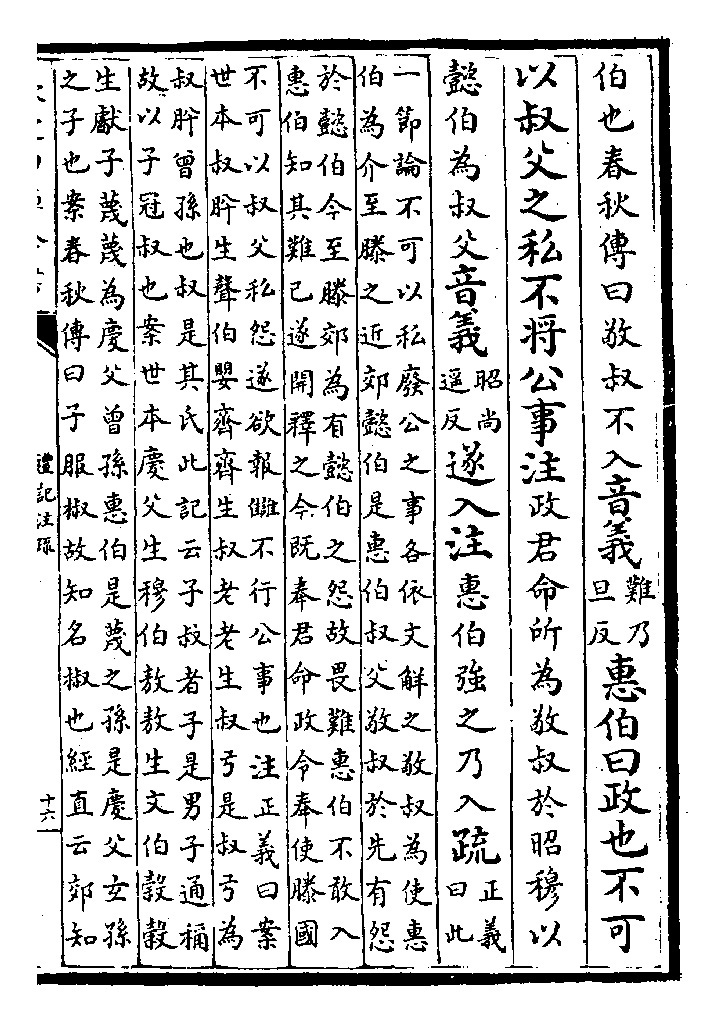 伯也春秋傳曰敬叔不入音義難乃旦反惠伯曰政也不可
以叔父之私不將公事注政君命所為敬叔於昭穆以
懿伯為叔父音義昭尚遥反遂入注惠伯強之乃入疏正義曰此
一節論不可以私廢公之事各依文解之敬叔為使惠
伯為介至滕之近郊懿伯是惠伯叔父敬叔於先有怨
於懿伯今至滕郊為有懿伯之怨故畏難惠伯不敢入
惠伯知其難已遂開釋之今既奉君命政令奉使滕國
不可以叔父私怨遂欲報讎不行公事也注正義曰案
世本叔肸生聲伯嬰齊齊生叔老老生叔弓是叔弓為
叔肸曾孫也叔是其氏此記云子叔者子是男子通稱
故以子冠叔也案世本慶父生穆伯敖敖生文伯穀穀
生獻子蔑蔑為慶父曾孫惠伯是蔑之孫是慶父玄孫
之子也案春秋傳曰子服椒故知名椒也經直云郊知
禮記注疏
十六